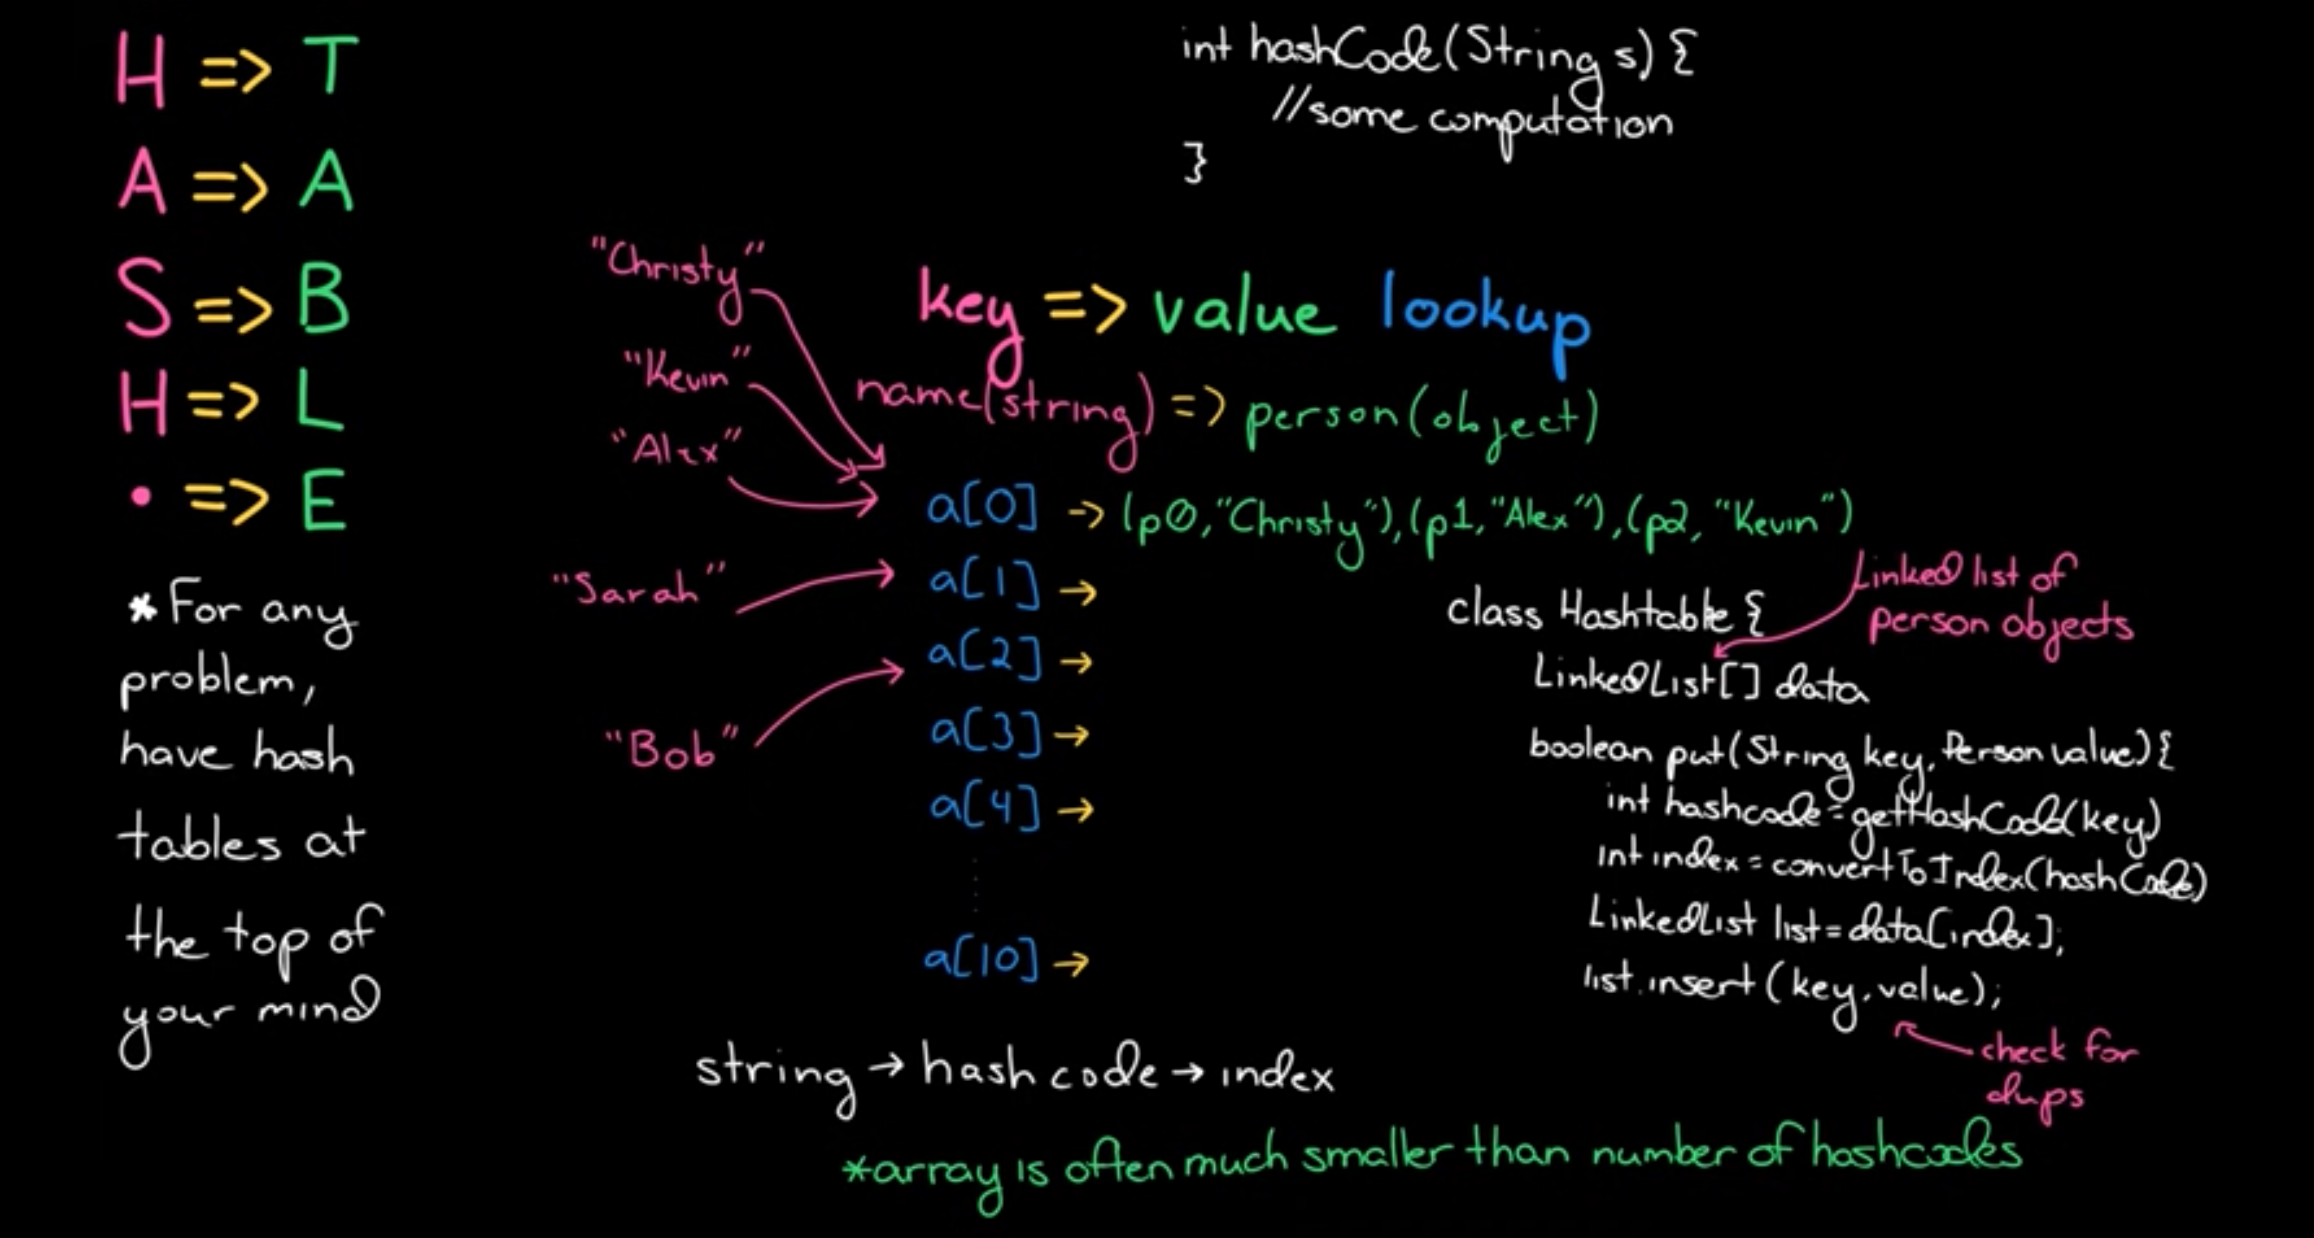 H => T
A => A
S => B
H => L
• => E
*For any
problem,
have hash
tables at
the top of
your mind
int hashCode(String s) {
//some computation
}
key => value lookup
name(string) => person(object)
"Christy"
"Kevin"
"Alex"
"Sarah"
"Bob"
a[0] -> (p0,"Christy"),(p1,"Alex"),(p2, "Kevin")
a[1] →
a[2] →
a[3] →
a[4] →
a[10] →
class Hashtable {
LinkedList[] data
boolean put(String key, Person value){
int hashcode = getHashCode(key)
int index = convertToIndex(hashCode)
LinkedList list = data[index];
list.insert(key, value);
Linked list of
person objects
check for
dups
string → hash code → index
*array is often much smaller than number of hashcodes